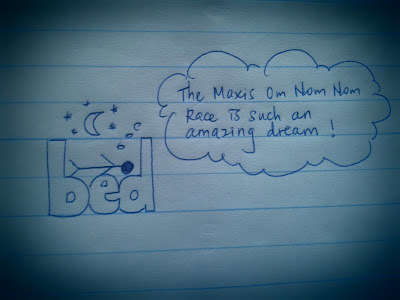 The Maxis Om Nom Nom
Race is such an
amazing dream !
bed